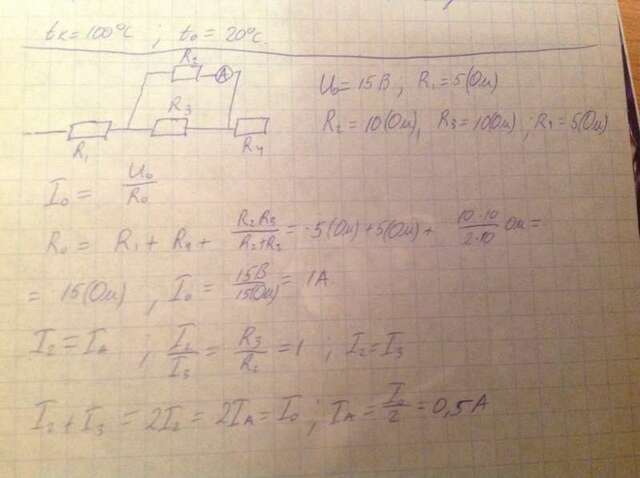 tк = 100°C ; t₀ = 20°C
R₂
A
R₃
R₁
R₄
U₀ = 15В ; R₁ = 5(Ом)
R₂ = 10(Ом), R₃ = 10(Ом) ; R₄ = 5(Ом)
I₀ = U₀/R₀
R₀ = R₁ + R₄ + R₂R₃/(R₂+R₃) = 5(Ом) + 5(Ом) + 10·10/2·10 Ом =
= 15(Ом) , I₀ = 15В/15(Ом) = 1А
I₂ = Iₐ ; I₂/I₃ = R₃/R₂ = 1 ; I₂ = I₃
I₂ + I₃ = 2I₂ = 2Iₐ = I₀ ; Iₐ = I₀/2 = 0,5А